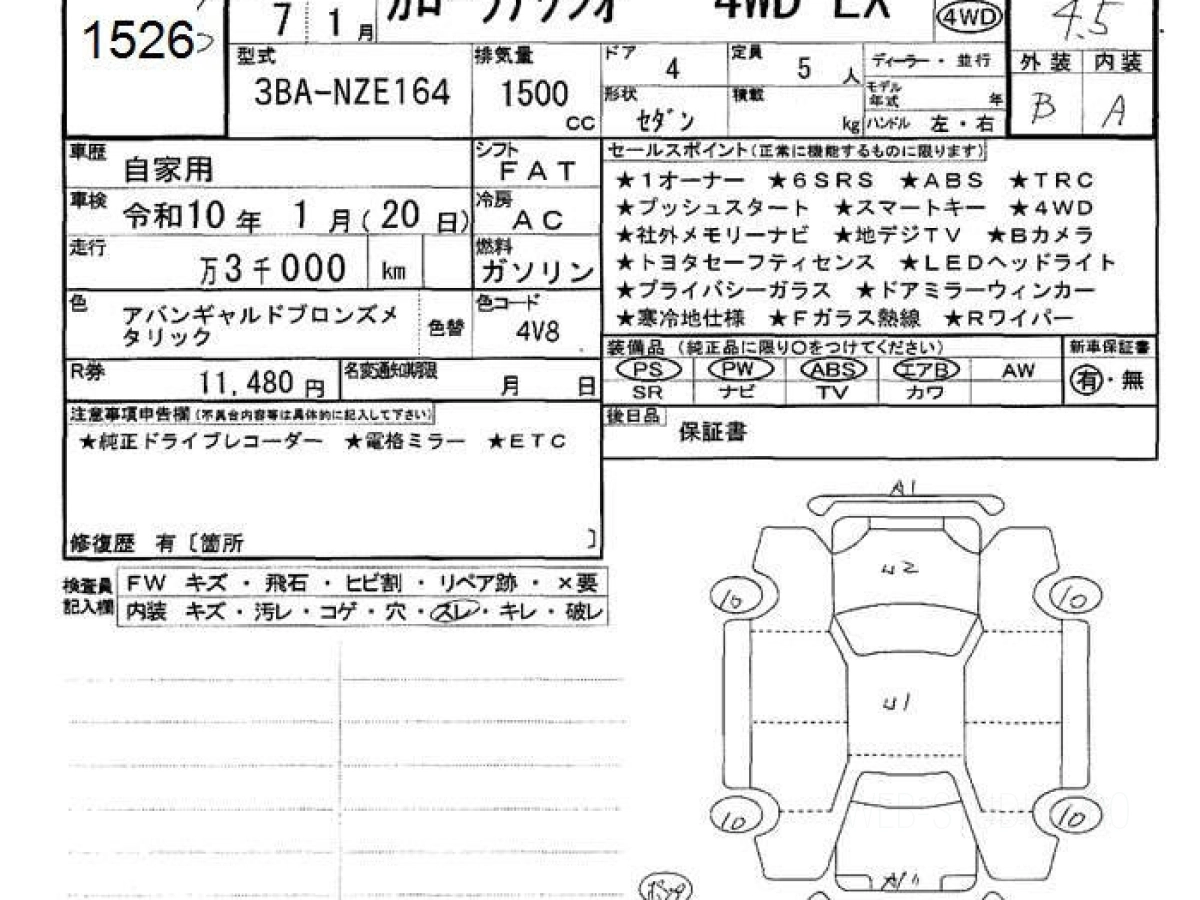 1526
7 1月 カローラアクシオ 4WD EX 4WD 4.5
型式 3BA-NZE164
排気量 1500 CC
ドア 4
定員 5 人
形状 セダン
積載 kg
ディーラー・並行
モデル年式 年
ハンドル 左・右
外装 内装
B A
車歴 自家用
シフト FAT
車検 令和10年 1月(20日)
冷房 AC
走行 万3千000 km
燃料 ガソリン
色 アバンギャルドブロンズメ
タリック
色替
色コード 4V8
R券 11,480円
名変通知期限 月 日
セールスポイント(正常に機能するものに限ります)
★1オーナー ★6SRS ★ABS ★TRC
★プッシュスタート ★スマートキー ★4WD
★社外メモリーナビ ★地デジTV ★Bカメラ
★トヨタセーフティセンス ★LEDヘッドライト
★プライバシーガラス ★ドアミラーウィンカー
★寒冷地仕様 ★Fガラス熱線 ★Rワイパー
装備品 (純正品に限り○をつけてください)
新車保証書
PS PW ABS エアB AW
SR ナビ TV カワ
有・無
後日品 保証書
注意事項申告欄(不具合内容等は具体的に記入して下さい)
★純正ドライブレコーダー ★電格ミラー ★ETC
修復歴 有〔箇所 〕
検査員
記入欄
FW キズ・飛石・ヒビ割・リペア跡・×要
内装 キズ・汚レ・コゲ・穴・スレ・キレ・破レ
A1
U2
10 10
U1
10 10